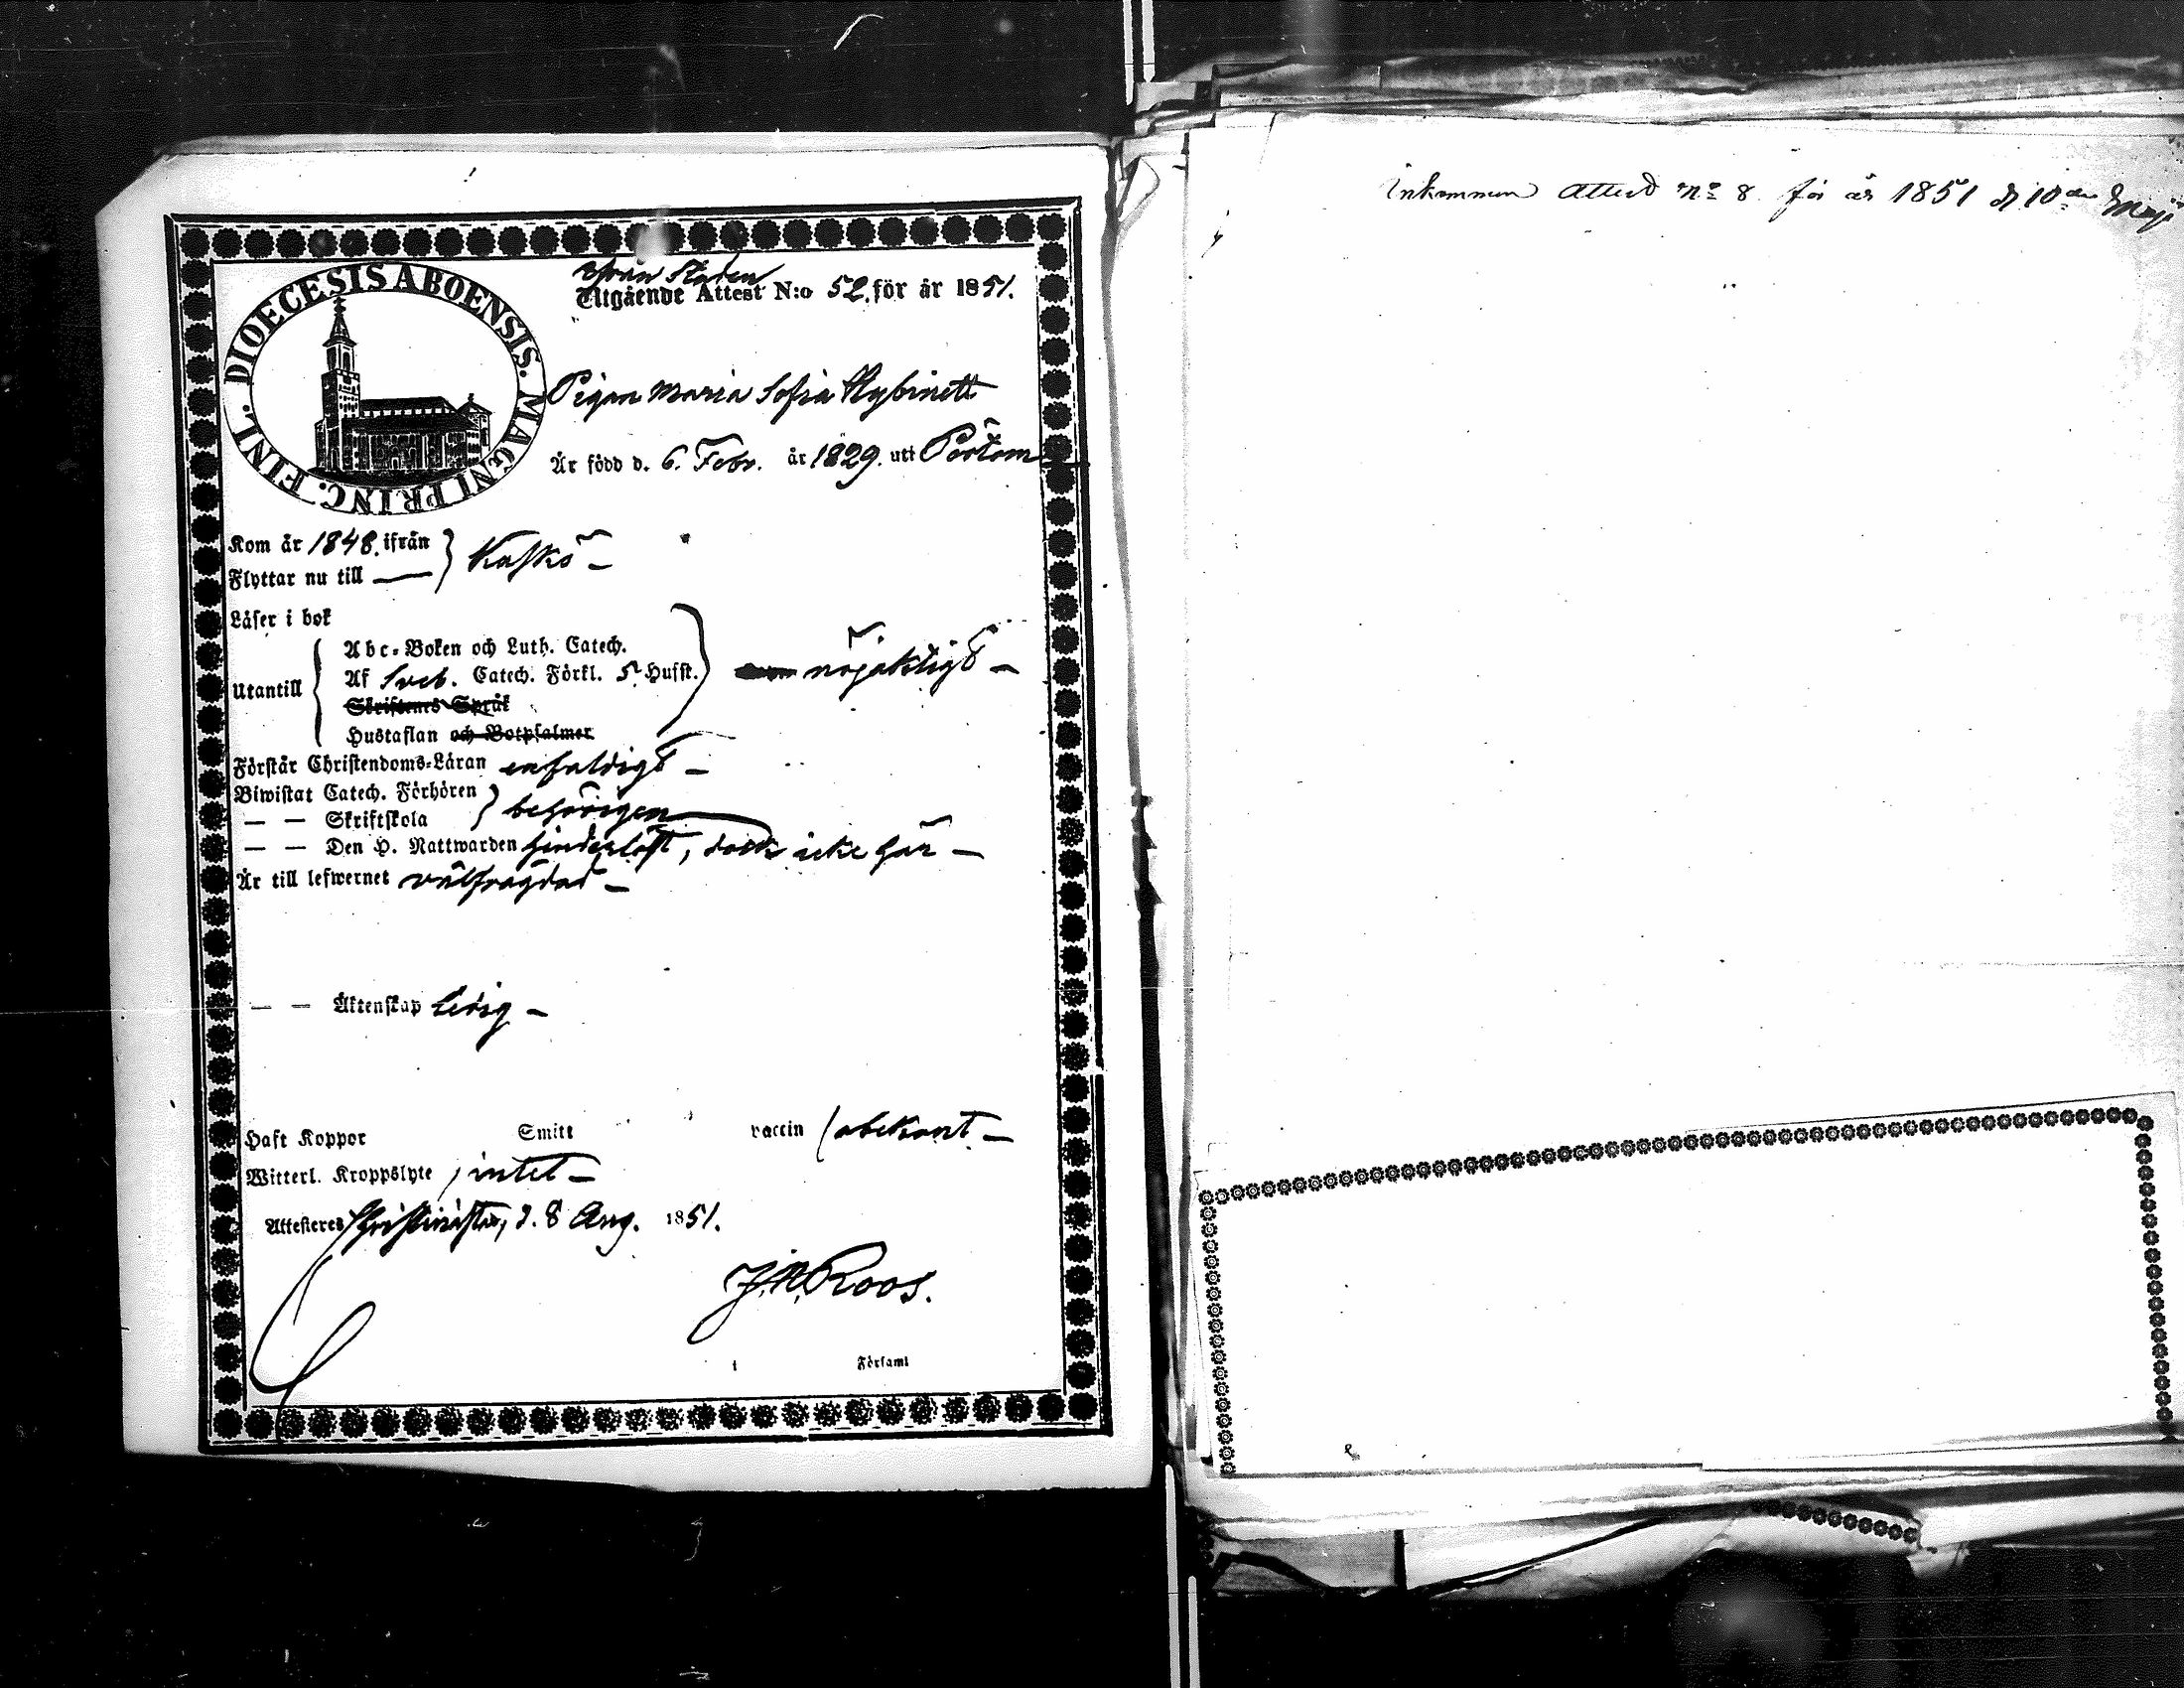 DIOECESIS ABOENSIS. MAGNI PRINC. FINL.
ifrån Staden
Utgående Attest N:o 52. för år 1851.
Pigan Maria Sofia Nybinett
Är född d. 6. Febr. år 1829. uti Pörtom
Kom år 1848. ifrån
Flyttar nu till — } Kaskö –
Läser i bok
Utantill
Abc-Boken och Luth. Catech.
Af Sveb. Catech. Förkl. 5 Husst.
nöjaktigt –
Skriftenes Språk
Hustaflan och Botpsalmer
Förstår Christendoms-Läran enfaldigt –
Biwistat Catech. Förhören
— — Skriftskola } behörigen
— — Den H. Nattwarden hinderlöst, dock icke här –
Är till lefwernet välfrägdad –
— — Äktenskap ledig –
Haft Koppor Smitt vaccin / obekant –
Witterl. Kroppslyte / intet –
Attesteres Christinestad, d. 8 Aug. 1851.
J. N. Roos.
i Församl
Inkommen Attest No 8 för år 1851 d 10de Maji